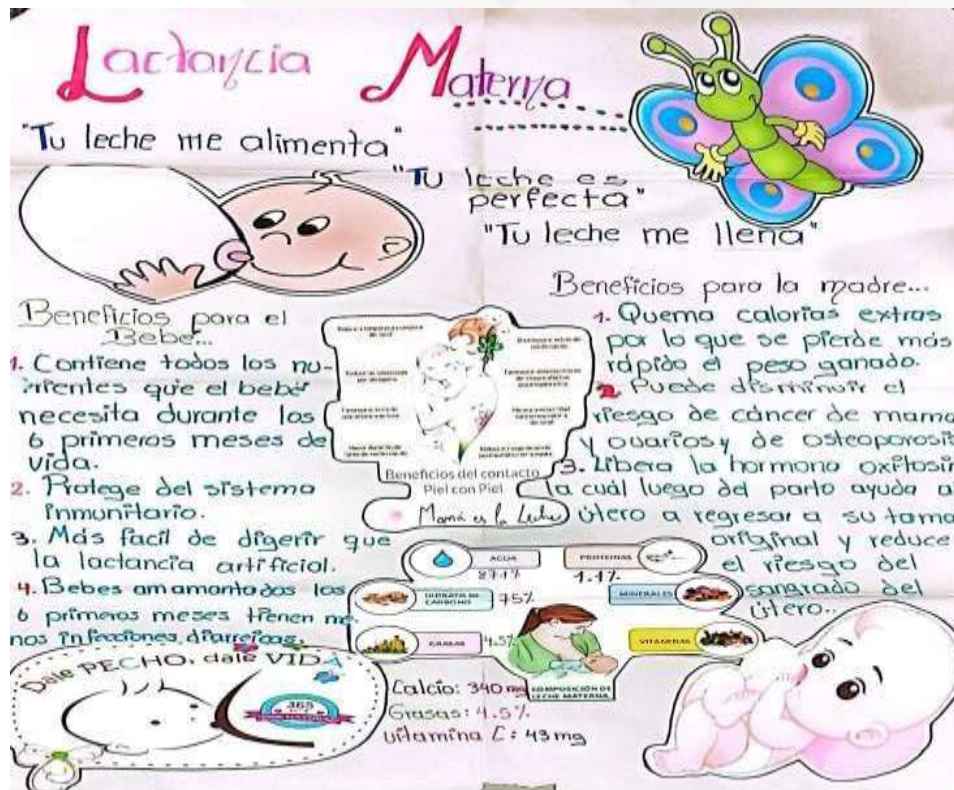 Lactancia Materna
"Tu leche me alimenta"
"Tu leche es
perfecta"
"Tu leche me llena"
Beneficios para el
Bebe...
1. Contiene todos los nu-
trientes que el bebé
necesita durante los
6 primeros meses de
vida.
2. Protege del sistema
inmunitario.
3. Más facil de digerir que
la lactancia artificial.
4. Bebes amamantados los
6 primeros meses tienen me-
nos infecciones diarreicas.
Beneficios para la madre...
1. Quema calorías extras
por lo que se pierde más
rápido el peso ganado.
2. Puede disminuir el
riesgo de cáncer de mama
y ovarios y de osteoporosis
3. Libera la hormona oxitosin
la cuál luego del parto ayuda al
útero a regresar a su tama
original y reduce
el riesgo del
sangrado del
útero..
Beneficios del contacto
Piel con Piel
Mamá es la Leche
AGUA
87.1%
PROTEINAS
1.1%
HIDRATO DE
CARBONO
75%
MINERALES
GRASAS
4.5%
VITAMINAS
COMPOSICIÓN DE
LECHE MATERNA
Dale PECHO, dale VIDA
365
Calcio: 340 mg
Grasas: 4.5%
vitamina C: 43 mg